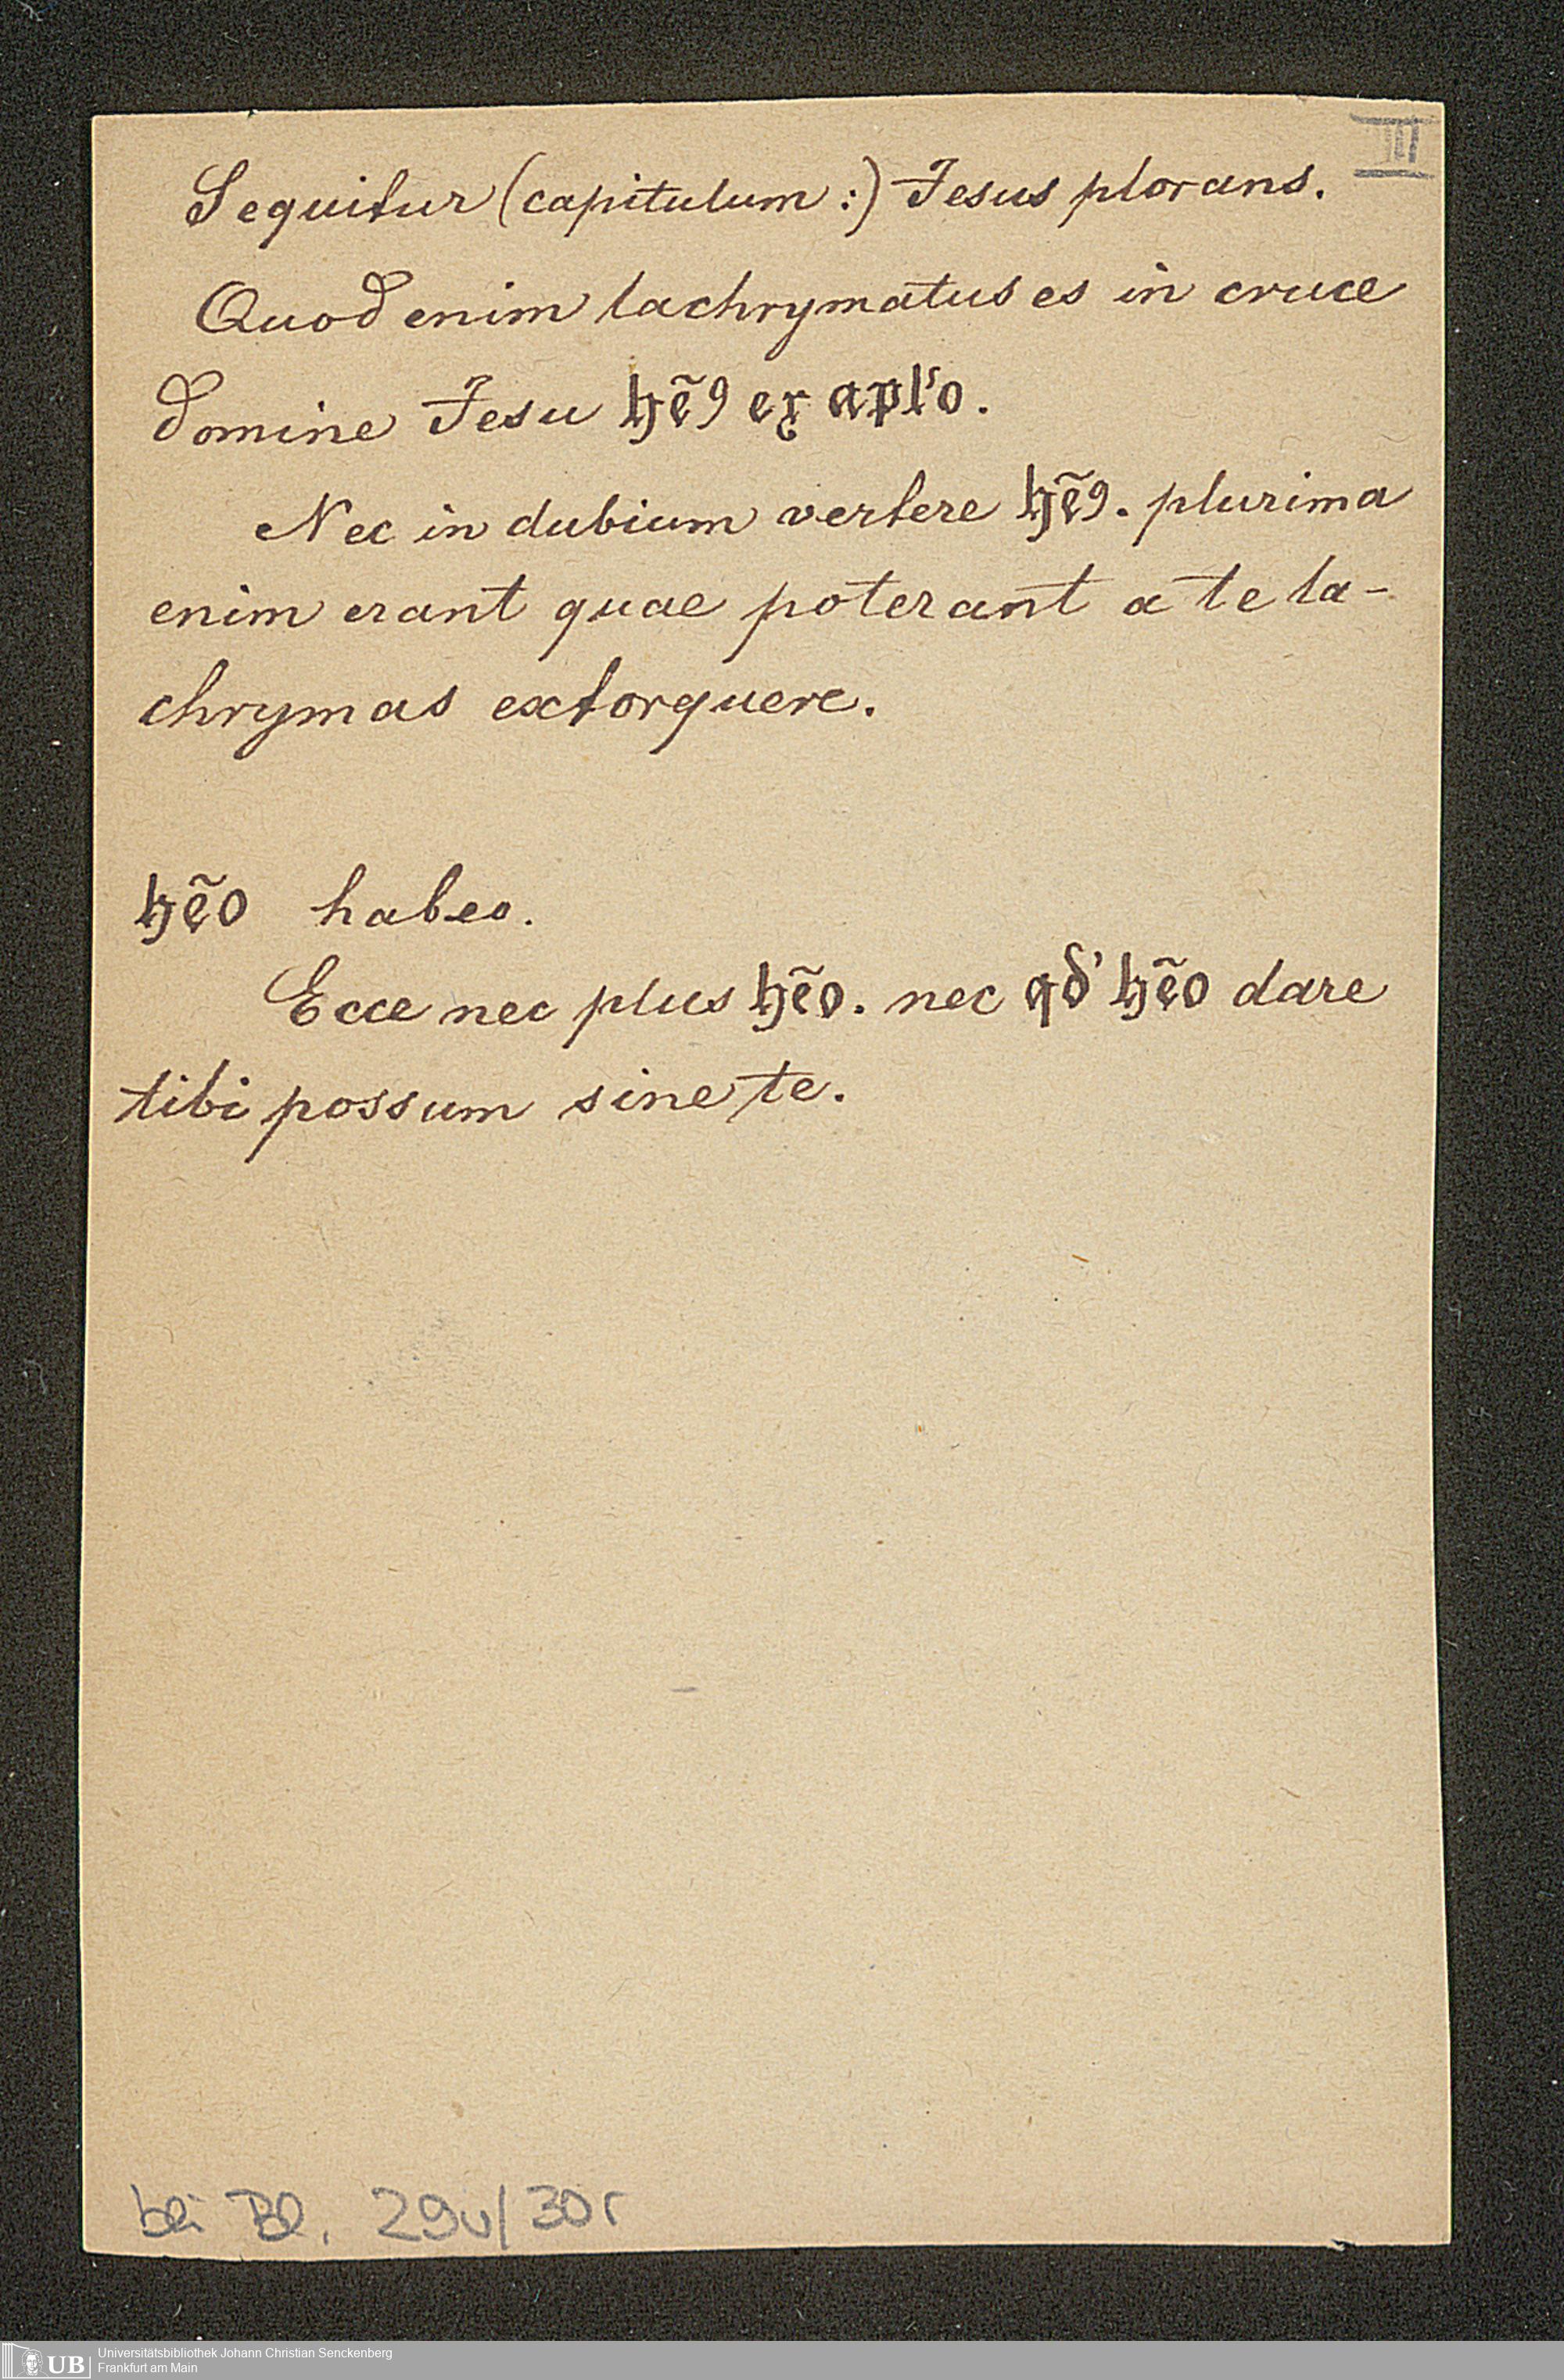 III
Sequitur (capitulum :) Jesus plorans.
Quod enim lachrymatus es in cruce
domine Jesu hẽ9 ex apl'o.
Nec in dubium vertere hẽ9. plurima
enim erant quae poterant a te la-
chrymas extorquere.
hẽo habeo.
Ecce nec plus hẽo. nec qd' hẽo dare
tibi possum sine te.
bei Bl. 29v/30r
UB
Universitätsbibliothek Johann Christian Senckenberg
Frankfurt am Main